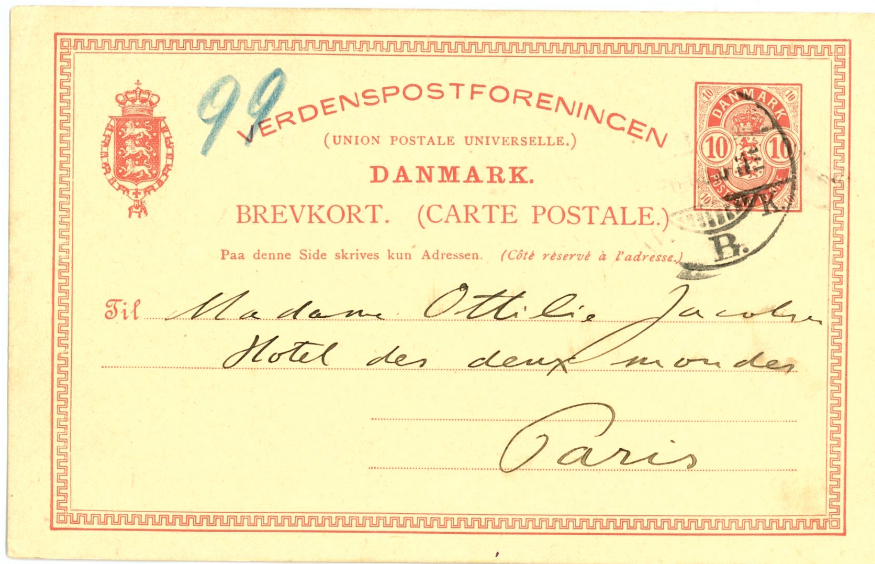 99
VERDENSPOSTFORENINGEN
(UNION POSTALE UNIVERSELLE.)
DANMARK.
BREVKORT. (CARTE POSTALE.)
Paa denne Side skrives kun Adressen. (Côté réservé à l'adresse.)
10 DANMARK 10
10 10
10
B. K.
Til Madame Ottilie Jacobsen
Hotel des deux mondes
Paris